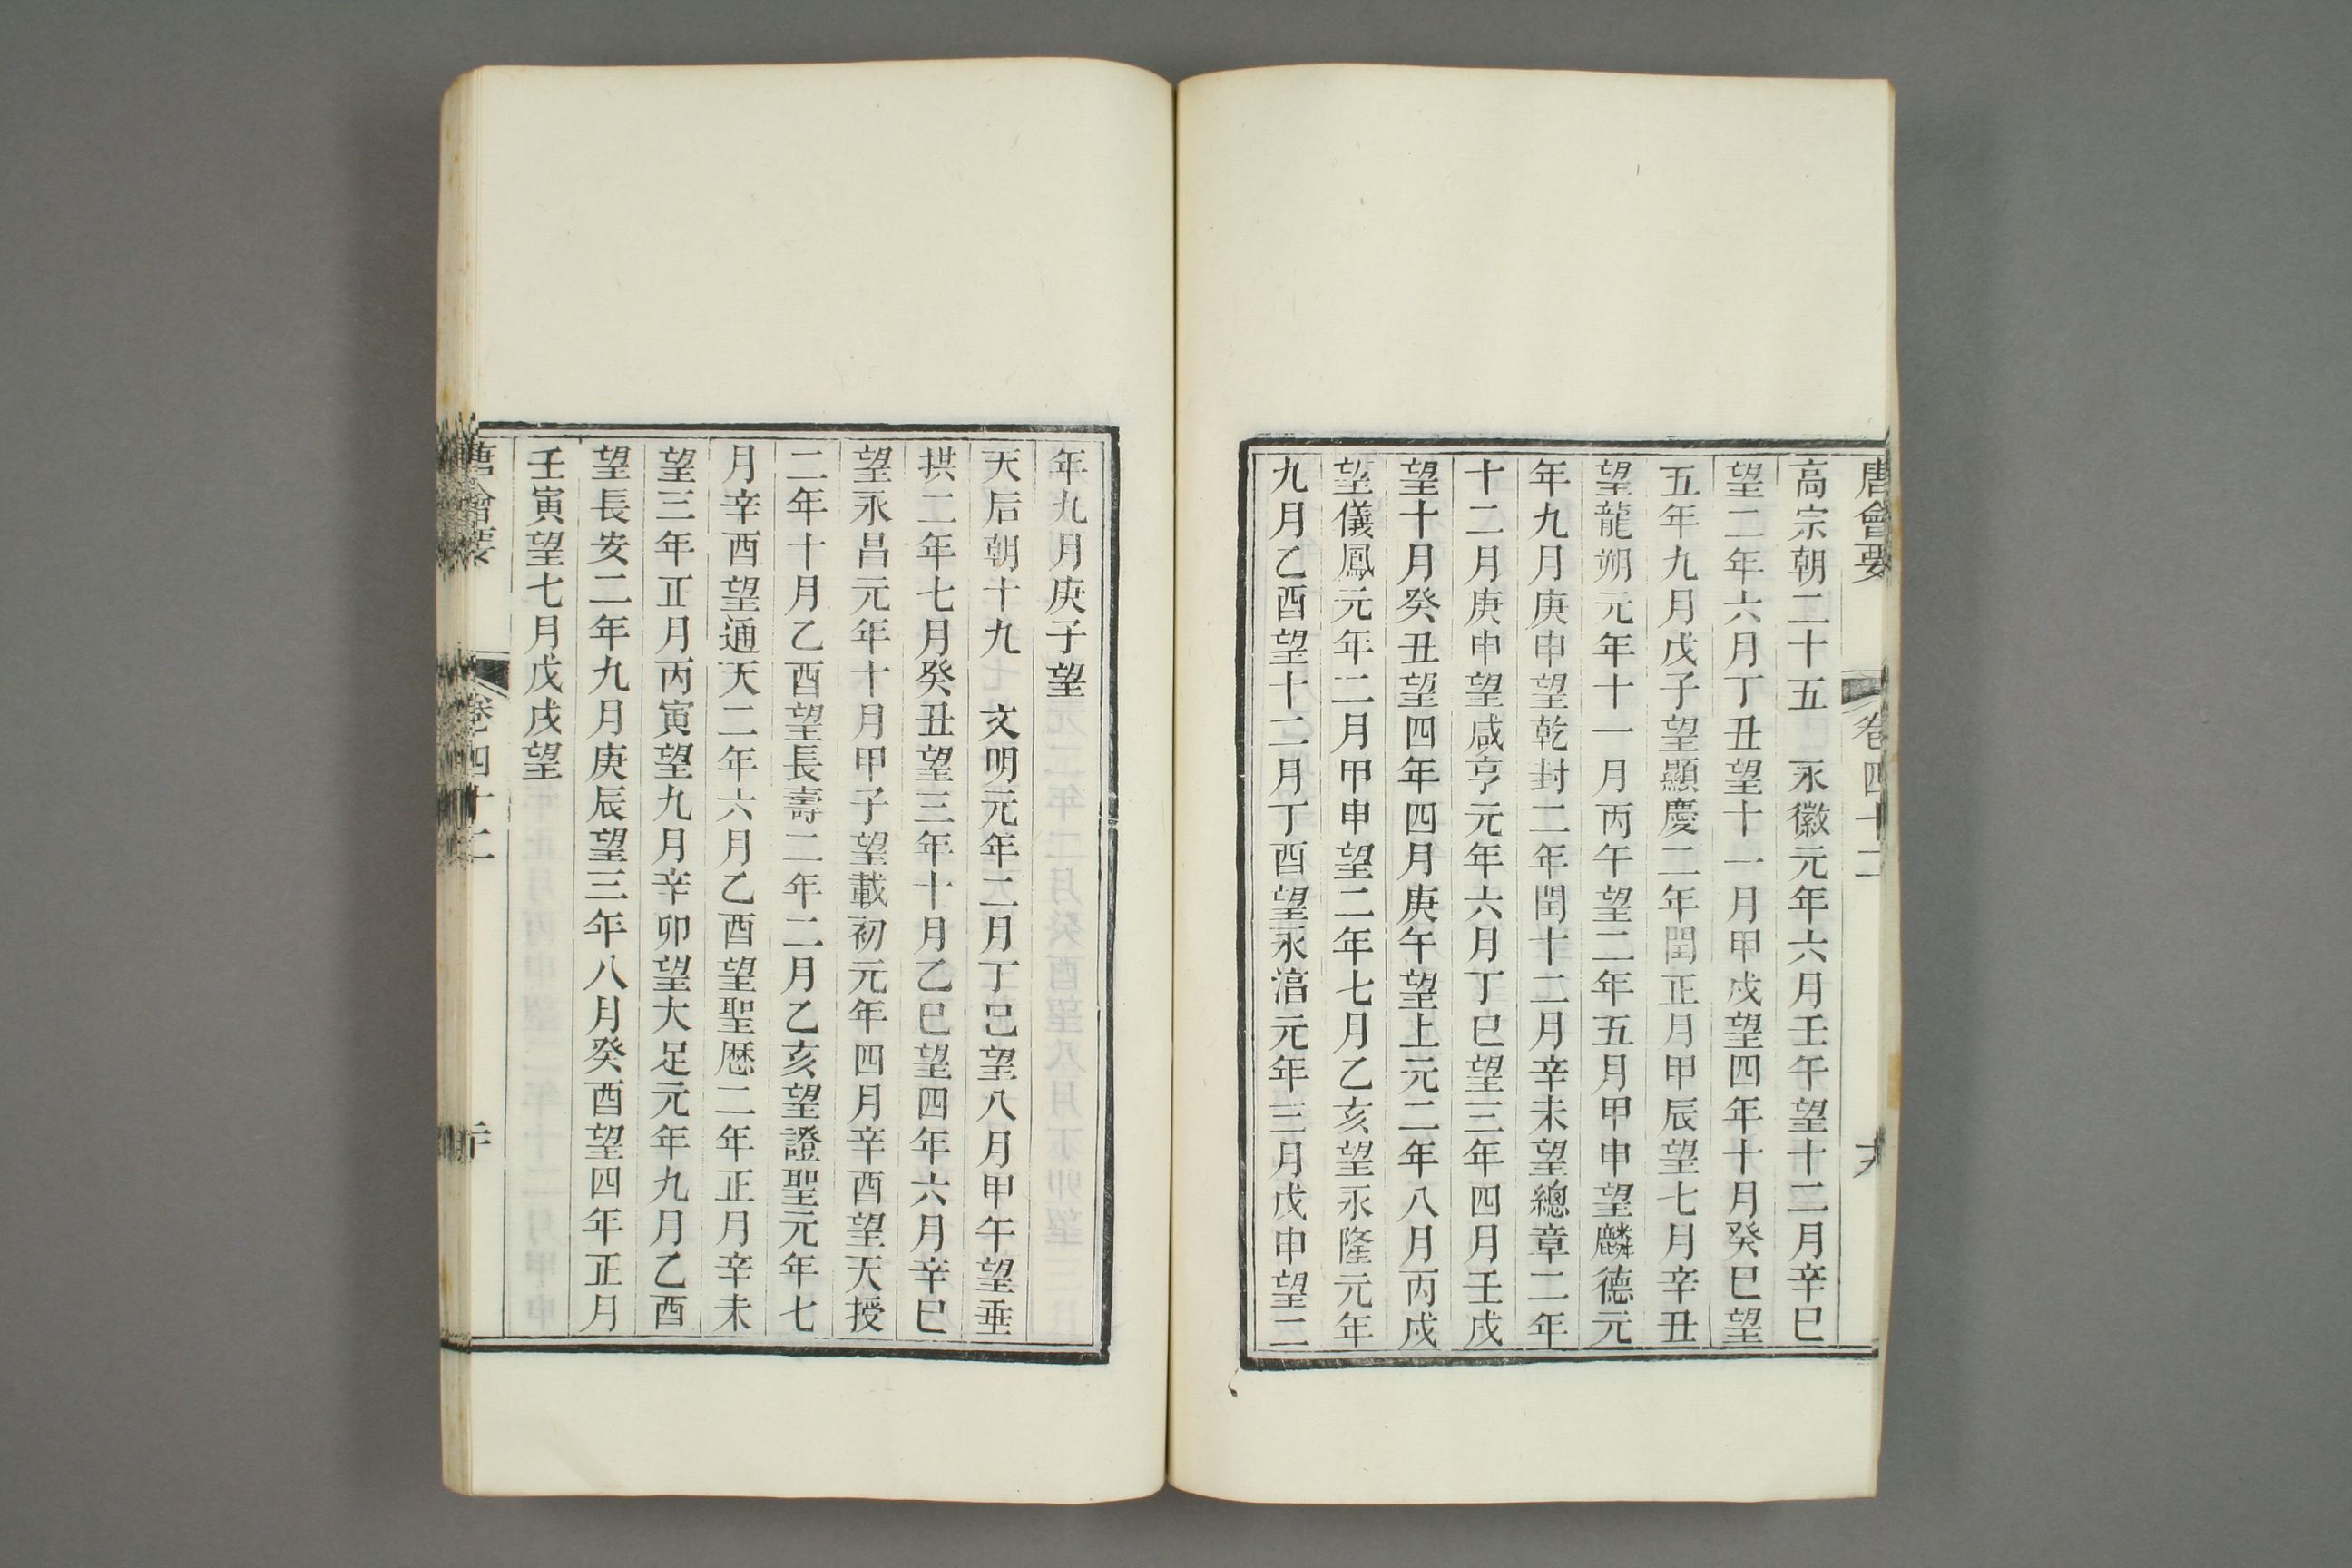 唐會要 卷四十二
高宗朝二十五 永徽元年六月壬午望十二月辛巳
望二年六月丁丑望十一月甲戌望四年十月癸巳望
五年九月戊子望顯慶二年閏正月甲辰望七月辛丑
望龍朔元年十一月丙午望二年五月甲申望麟德元
年九月庚申望乾封二年閏十二月辛未望總章二年
十二月庚申望咸亨元年六月丁巳望三年四月壬戌
望十月癸丑望四年四月庚午望上元二年八月丙戌
望儀鳳元年二月甲申望二年七月乙亥望永隆元年
九月乙酉望十二月丁酉望永淳元年三月戊申望二
年九月庚子望
天后朝十九 文明元年二月丁巳望八月甲午望垂
拱二年七月癸丑望三年十月乙巳望四年六月辛巳
望永昌元年十月甲子望載初元年四月辛酉望天授
二年十月乙酉望長壽二年二月乙亥望證聖元年七
月辛酉望通天二年六月乙酉望聖歷二年正月辛未
望三年正月丙寅望九月辛卯望大足元年九月乙酉
望長安二年九月庚辰望三年八月癸酉望四年正月
壬寅望七月戊戌望
唐會要 卷四十二